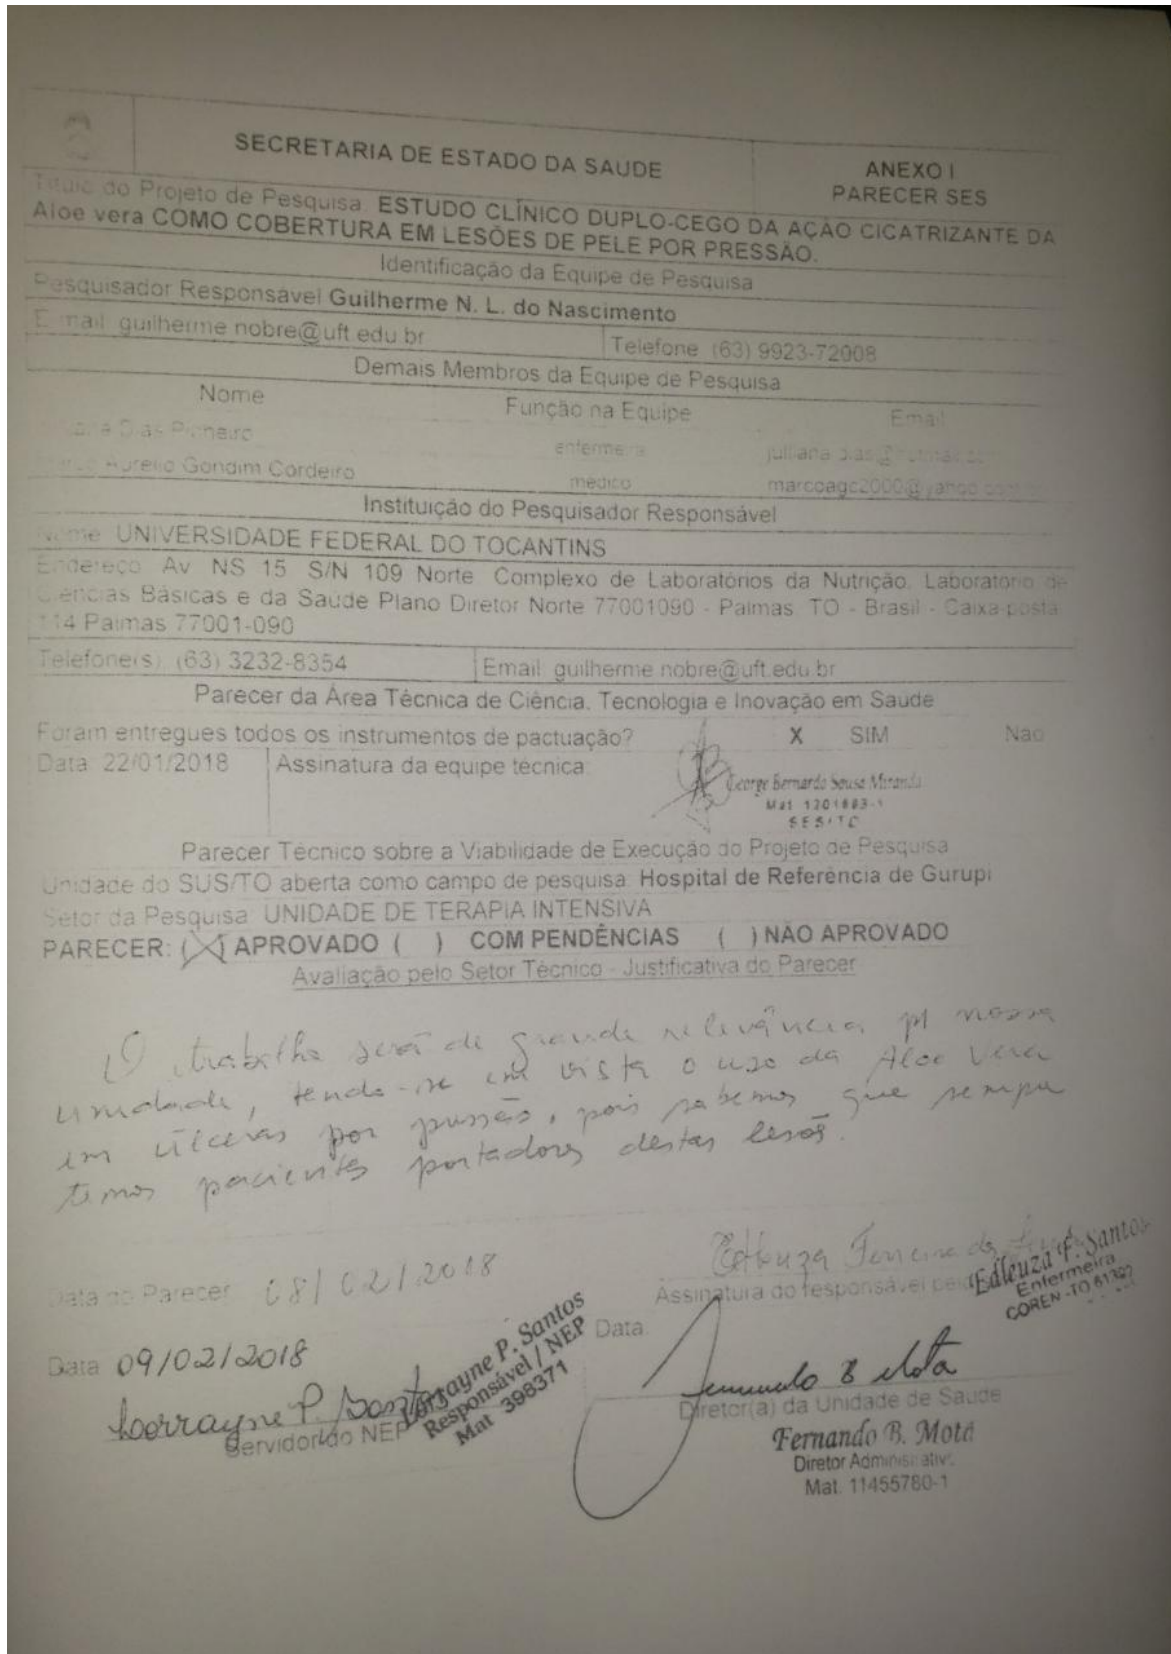 SECRETARIA DE ESTADO DA SAUDE
ANEXO I
PARECER SES
Título do Projeto de Pesquisa: ESTUDO CLÍNICO DUPLO-CEGO DA AÇÃO CICATRIZANTE DA
Aloe vera COMO COBERTURA EM LESÕES DE PELE POR PRESSÃO.
Identificação da Equipe de Pesquisa
Pesquisador Responsável Guilherme N. L. do Nascimento
E-mail: guilherme.nobre@uft.edu.br
Telefone: (63) 9923-72008
Demais Membros da Equipe de Pesquisa
Nome Função na Equipe Email
Dias Pinheiro enfermeira
Aurelio Gondim Cordeiro médico marcoagc2000@yahoo
Instituição do Pesquisador Responsável
Nome: UNIVERSIDADE FEDERAL DO TOCANTINS
Endereço: Av NS 15 S/N 109 Norte Complexo de Laboratórios da Nutrição, Laboratório de
Ciências Básicas e da Saúde Plano Diretor Norte 77001090 - Palmas, TO - Brasil - Caixa-posta
114 Palmas 77001-090
Telefone(s): (63) 3232-8354
Email: guilherme.nobre@uft.edu.br
Parecer da Área Técnica de Ciência, Tecnologia e Inovação em Saude
Foram entregues todos os instrumentos de pactuação? X SIM Não
Data: 22/01/2018 Assinatura da equipe técnica:
George Bernardo Sousa Miranda
Mat 1201883-1
SES/TO
Parecer Técnico sobre a Viabilidade de Execução do Projeto de Pesquisa
Unidade do SUS/TO aberta como campo de pesquisa: Hospital de Referência de Gurupi
Setor da Pesquisa: UNIDADE DE TERAPIA INTENSIVA
PARECER: (X) APROVADO ( ) COM PENDÊNCIAS ( ) NÃO APROVADO
Avaliação pelo Setor Técnico - Justificativa do Parecer
O trabalho será de grande relevância p/ nossa
unidade, tendo-se em vista o uso da Aloe Vera
em úlceras por pressão, pois sabemos que sempre
temos pacientes portadores destas lesões.
Data do Parecer: 08/02/2018
Edleuza Ferreira
Assinatura do responsável pelo
Edleuza F. Santos
Enfermeira
COREN-TO
Data 09/02/2018
Data:
Lorrayne P. Santos
Servidor do NEP
Lorrayne P. Santos
Responsável / NEP
Mat 398371
Fernando B Mota
Diretor(a) da Unidade de Saude
Fernando B. Mota
Diretor Administrativo
Mat. 11455780-1